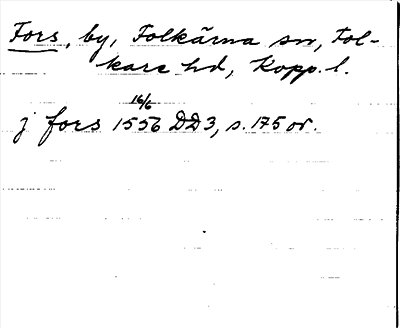 Fors, by, Folkärna sn, Fol-
kare hd, Kopp. l.
16/6
j fors 1556 DD3, s. 175 or.